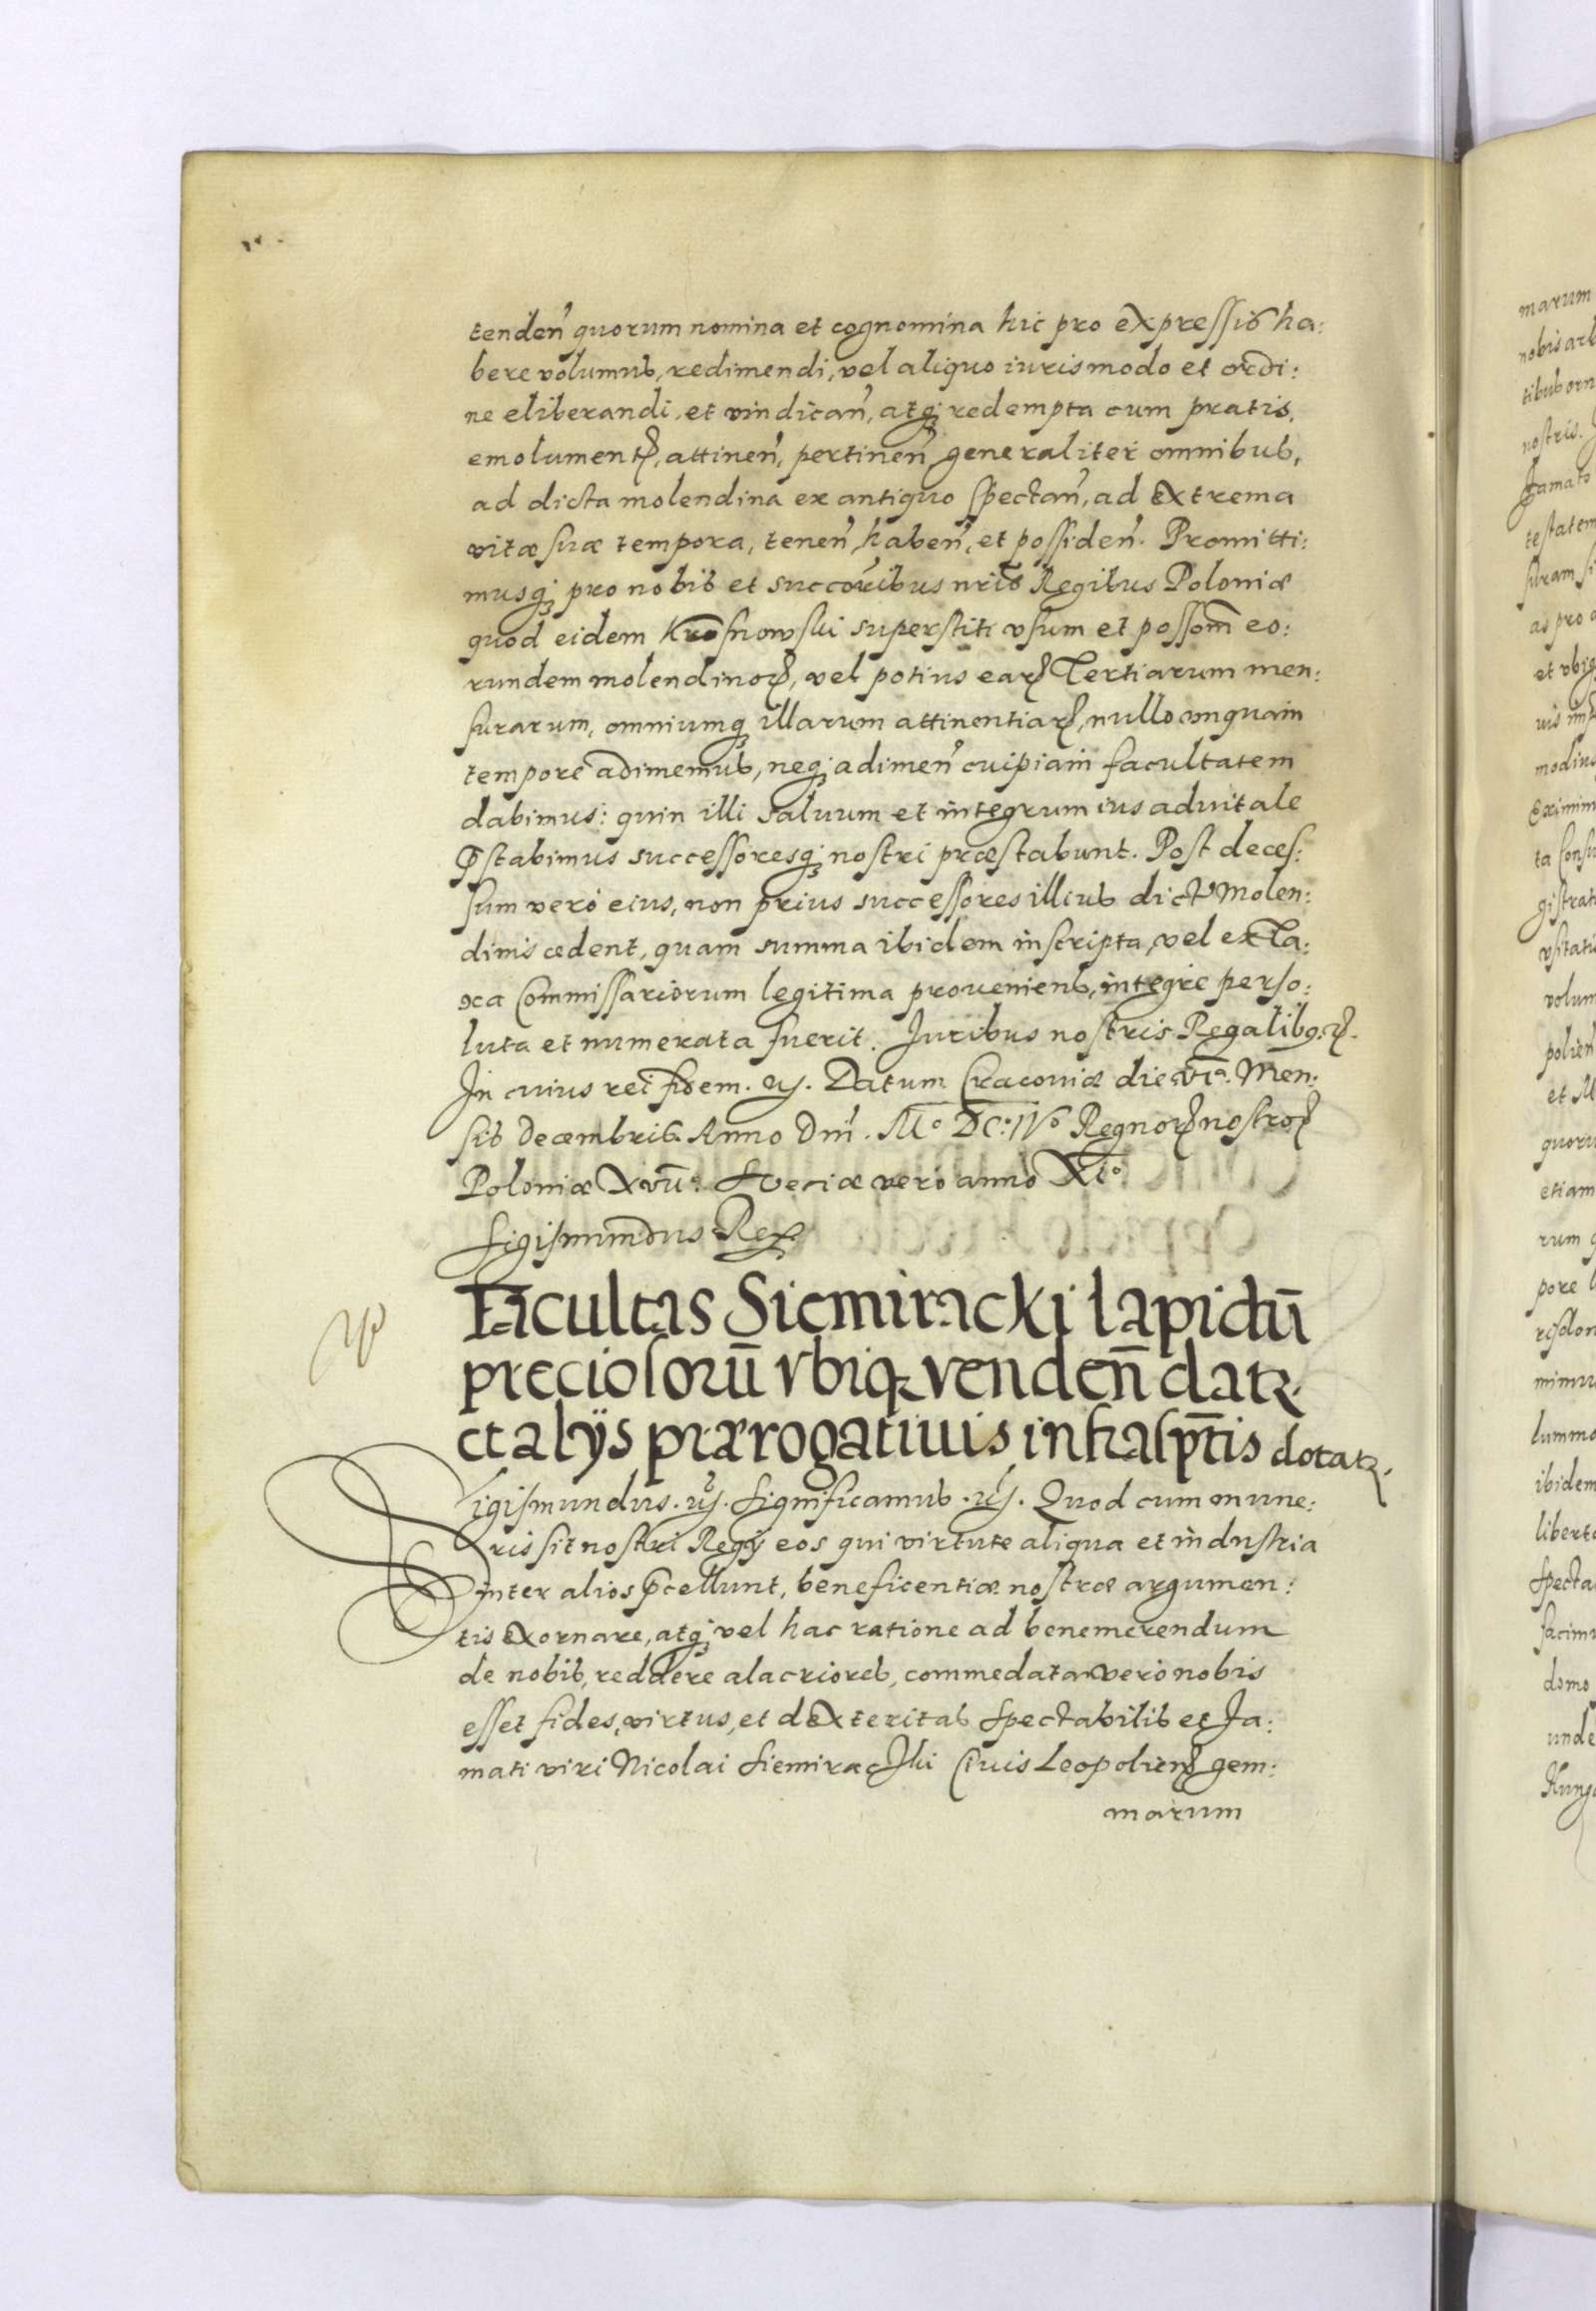 tenden̄ quorum nomina et cognomina hic pro expressis ha:
bere volumus, redimendi, vel aliquo iuris modo et ordi:
ne eliberandi, et vindican̄, atq₃ redempta cum pratis,
emolumentꝭ, attinen̄, pertinen̄ generaliter omnibus,
ad dicta molendina ex antiquo spectan̄, ad extrema
vitæ suæ tempora, tenen̄, haben̄, et possiden̄. Promitti:
musq₃ pro nobis et succoribus nris Regibus Poloniæ
quod eidem Krosnowski superstiti vsum et possom̄ eo:
rundem molendinoꝝ, vel potius eaꝝ Tertiarum men:
surarum, omniumq₃ illarum attinentiaꝝ, nullo vnquam
tempore adimemus, neq₃ adimen̄ cuipiam facultatem
dabimus: quin illi saluum et integrum ius aduitale
p̄stabimus successoresq₃ nostri præstabunt. Post deces:
sum vero eius, non prius successores illius dictis Molen:
dinis cedent, quam summa ibidem inscripta, vel ex Ta:
xa Commissariorum legitima proueniens, integre perso:
luta et numerata fuerit. Juribus nostris Regalibꝯ. ꝛ.
In cuius rei fidem. ꝛꝭ. Datum Cracouiæ die VIa. Men:
sis Decembris. Anno Dni. Mo DC: IVo Regnoꝝ nostroꝝ
Poloniæ XVIIo. Sveciæ vero anno XIo
Sigismundus Rex.
Facultas Siemiracki lapidū
preciosorū vbiqꝫ venden̄ datꝛ.
et alÿs prærogatiuis infrasptis dotatꝛ.
Sigismundus. ꝛꝭ. Significamus. ꝛꝭ. Quod cum mune:
ris sit nostri Regÿ eos qui virtute aliqua et industria
inter alios p̄cellunt, beneficentiæ nostræ argumen:
tis exornare, atq₃ vel hac ratione ad benemerendum
de nobis, reddere alacriores, commedata vero nobis
esset fides, virtus, et dexteritas Spectabilis et Fa:
mati viri Nicolai Siemiracki Ciuis Leopolien̄ gem:
marum